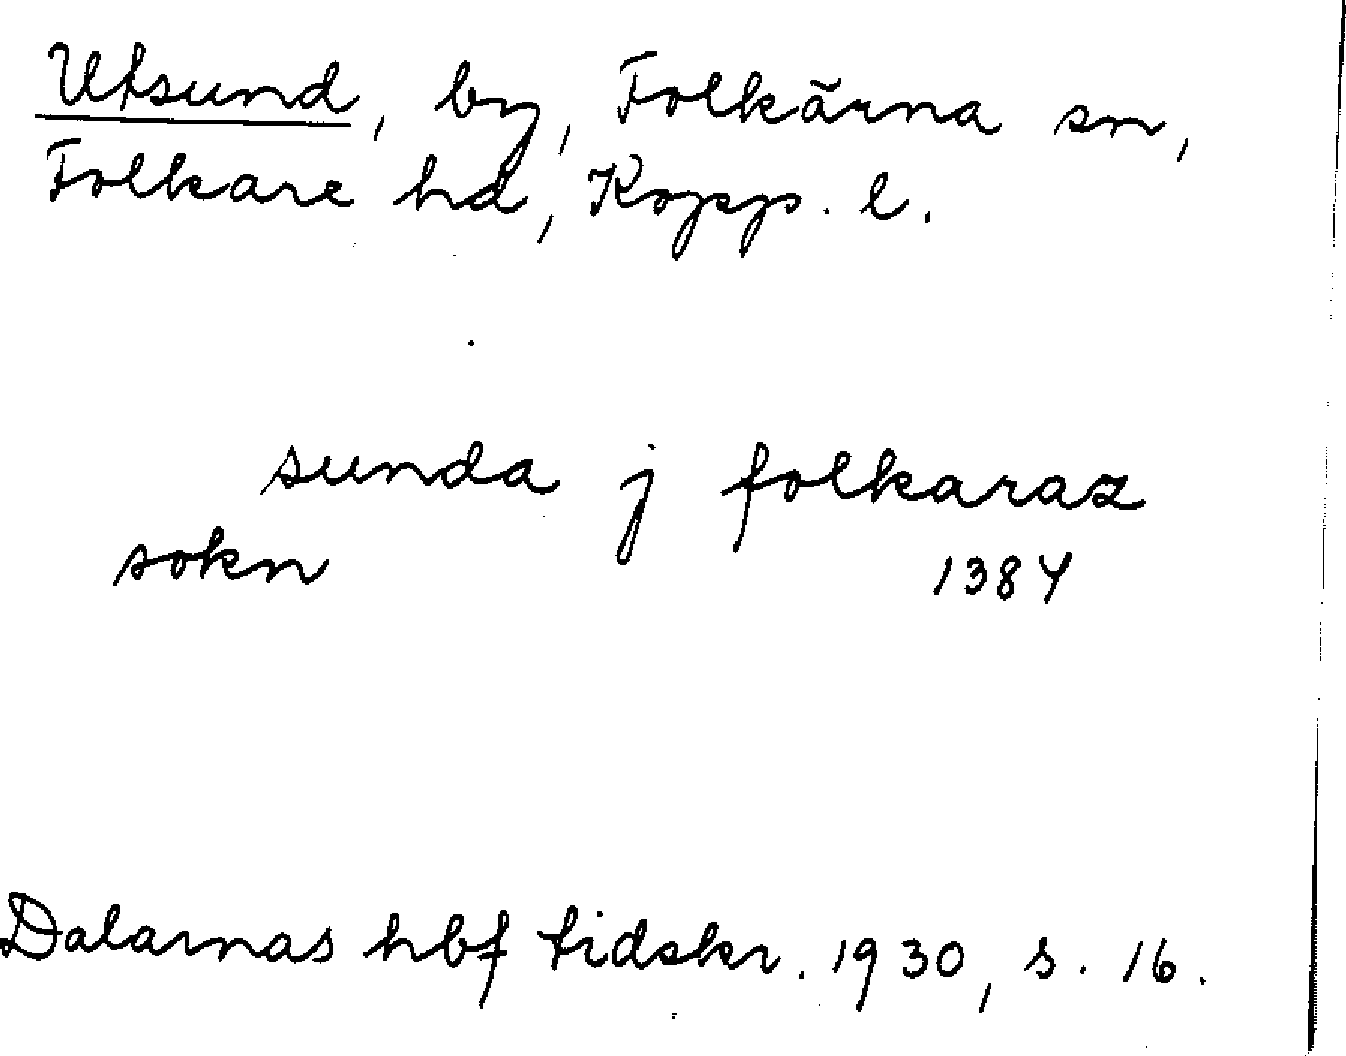 Utsund, by, Folkärna sn,
Folkare hd, Kopp. l.
sunda j folkaraz
sokn 1384
Dalarnas hbf tidskr. 1930, s. 16.